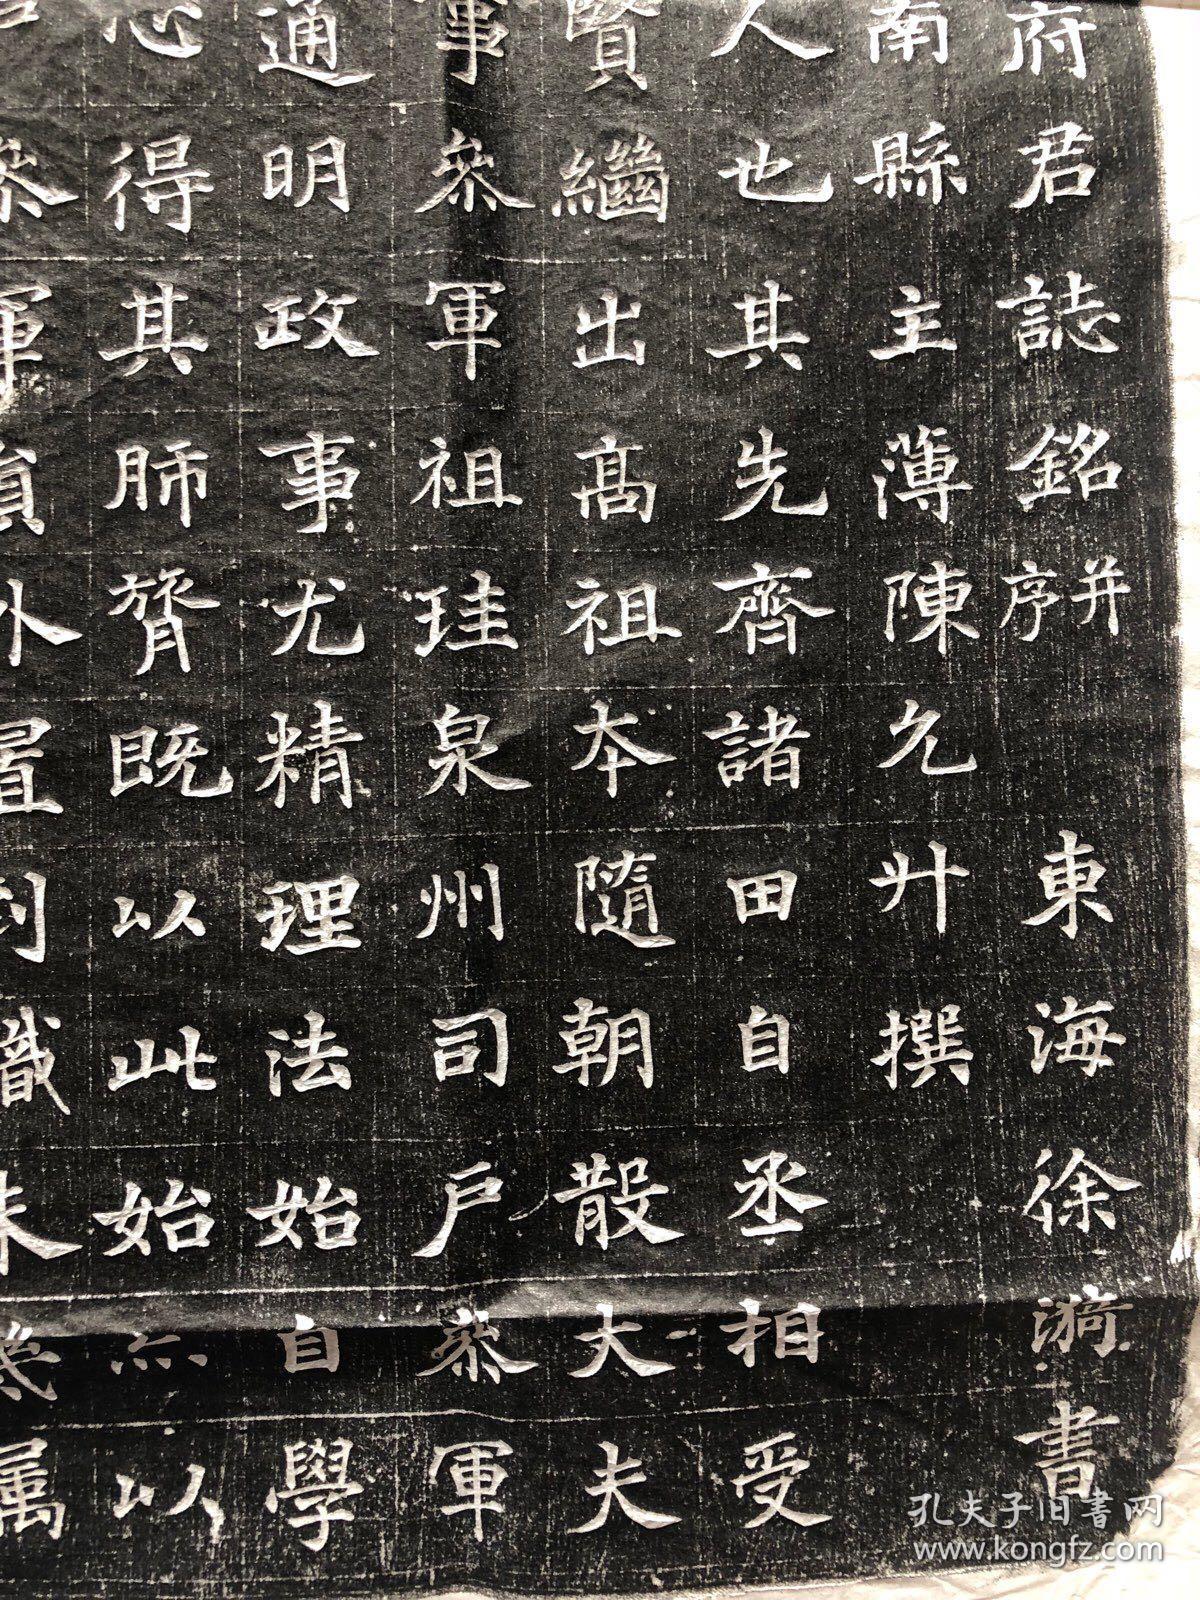 府君誌銘并序 東海徐漪書
南縣主薄陳允升撰
人也其先齊諸田自丞相受
賢繼出高祖本隨朝散大夫
事參軍祖珪泉州司戶參軍
通明政事尤精理法始自學
心得其師膂既以此始亦以
孔夫子旧书网
www.kongfz.com